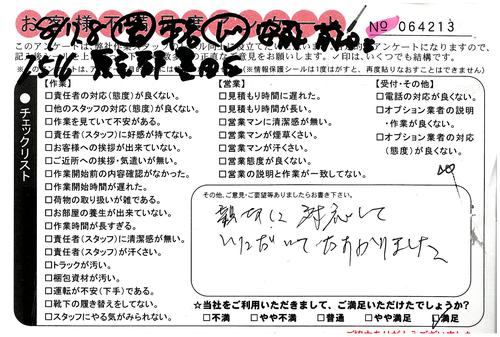 お客様不満足度アンケート
№ 064213
このアンケートは弊社作業スタッフのスキル向上に役立て
アンケートになりますので、
ご意見をお願いします。✓印は、いくつでも結構です。
(※情報保護シールは1度はがすと、再度貼りなおすことはできません)
チェックリスト
【作業】
□責任者の対応(態度)が良くない。
□他のスタッフの対応(態度)が良くない。
□作業を見ていて不安がある。
□責任者(スタッフ)に好感が持てない。
□お客様への挨拶が出来ていない。
□ご近所への挨拶・気遣いが無い。
□作業開始前の内容確認がなかった。
□作業開始時間が遅れた。
□荷物の取り扱いが雑である。
□お部屋の養生が出来ていない。
□作業時間が長すぎる。
□責任者(スタッフ)に清潔感が無い。
□責任者(スタッフ)が汗くさい。
□トラックが汚い。
□梱包資材が汚い。
□運転が不安(下手)である。
□靴下の履き替えをしてない。
□スタッフにやる気がみられない。
【営業】
□見積もり時間に遅れた。
□見積もり時間が長い。
□営業マンに清潔感が無い。
□営業マンが煙草くさい。
□営業マンが汗くさい。
□営業態度が良くない。
□営業の説明と作業が一致してない。
【受付・その他】
□電話の対応が良くない。
□オプション業者の説明
・作業が良くない。
□オプション業者の対応
(態度)が良くない。
その他、ご意見・ご要望等ありましたらお書き下さい。
親切に対応して
いただいてたすかりました
☆当社をご利用いただきまして、ご満足いただけたでしょうか?
□不満 □やや不満 □普通 □やや満足 ☑満足